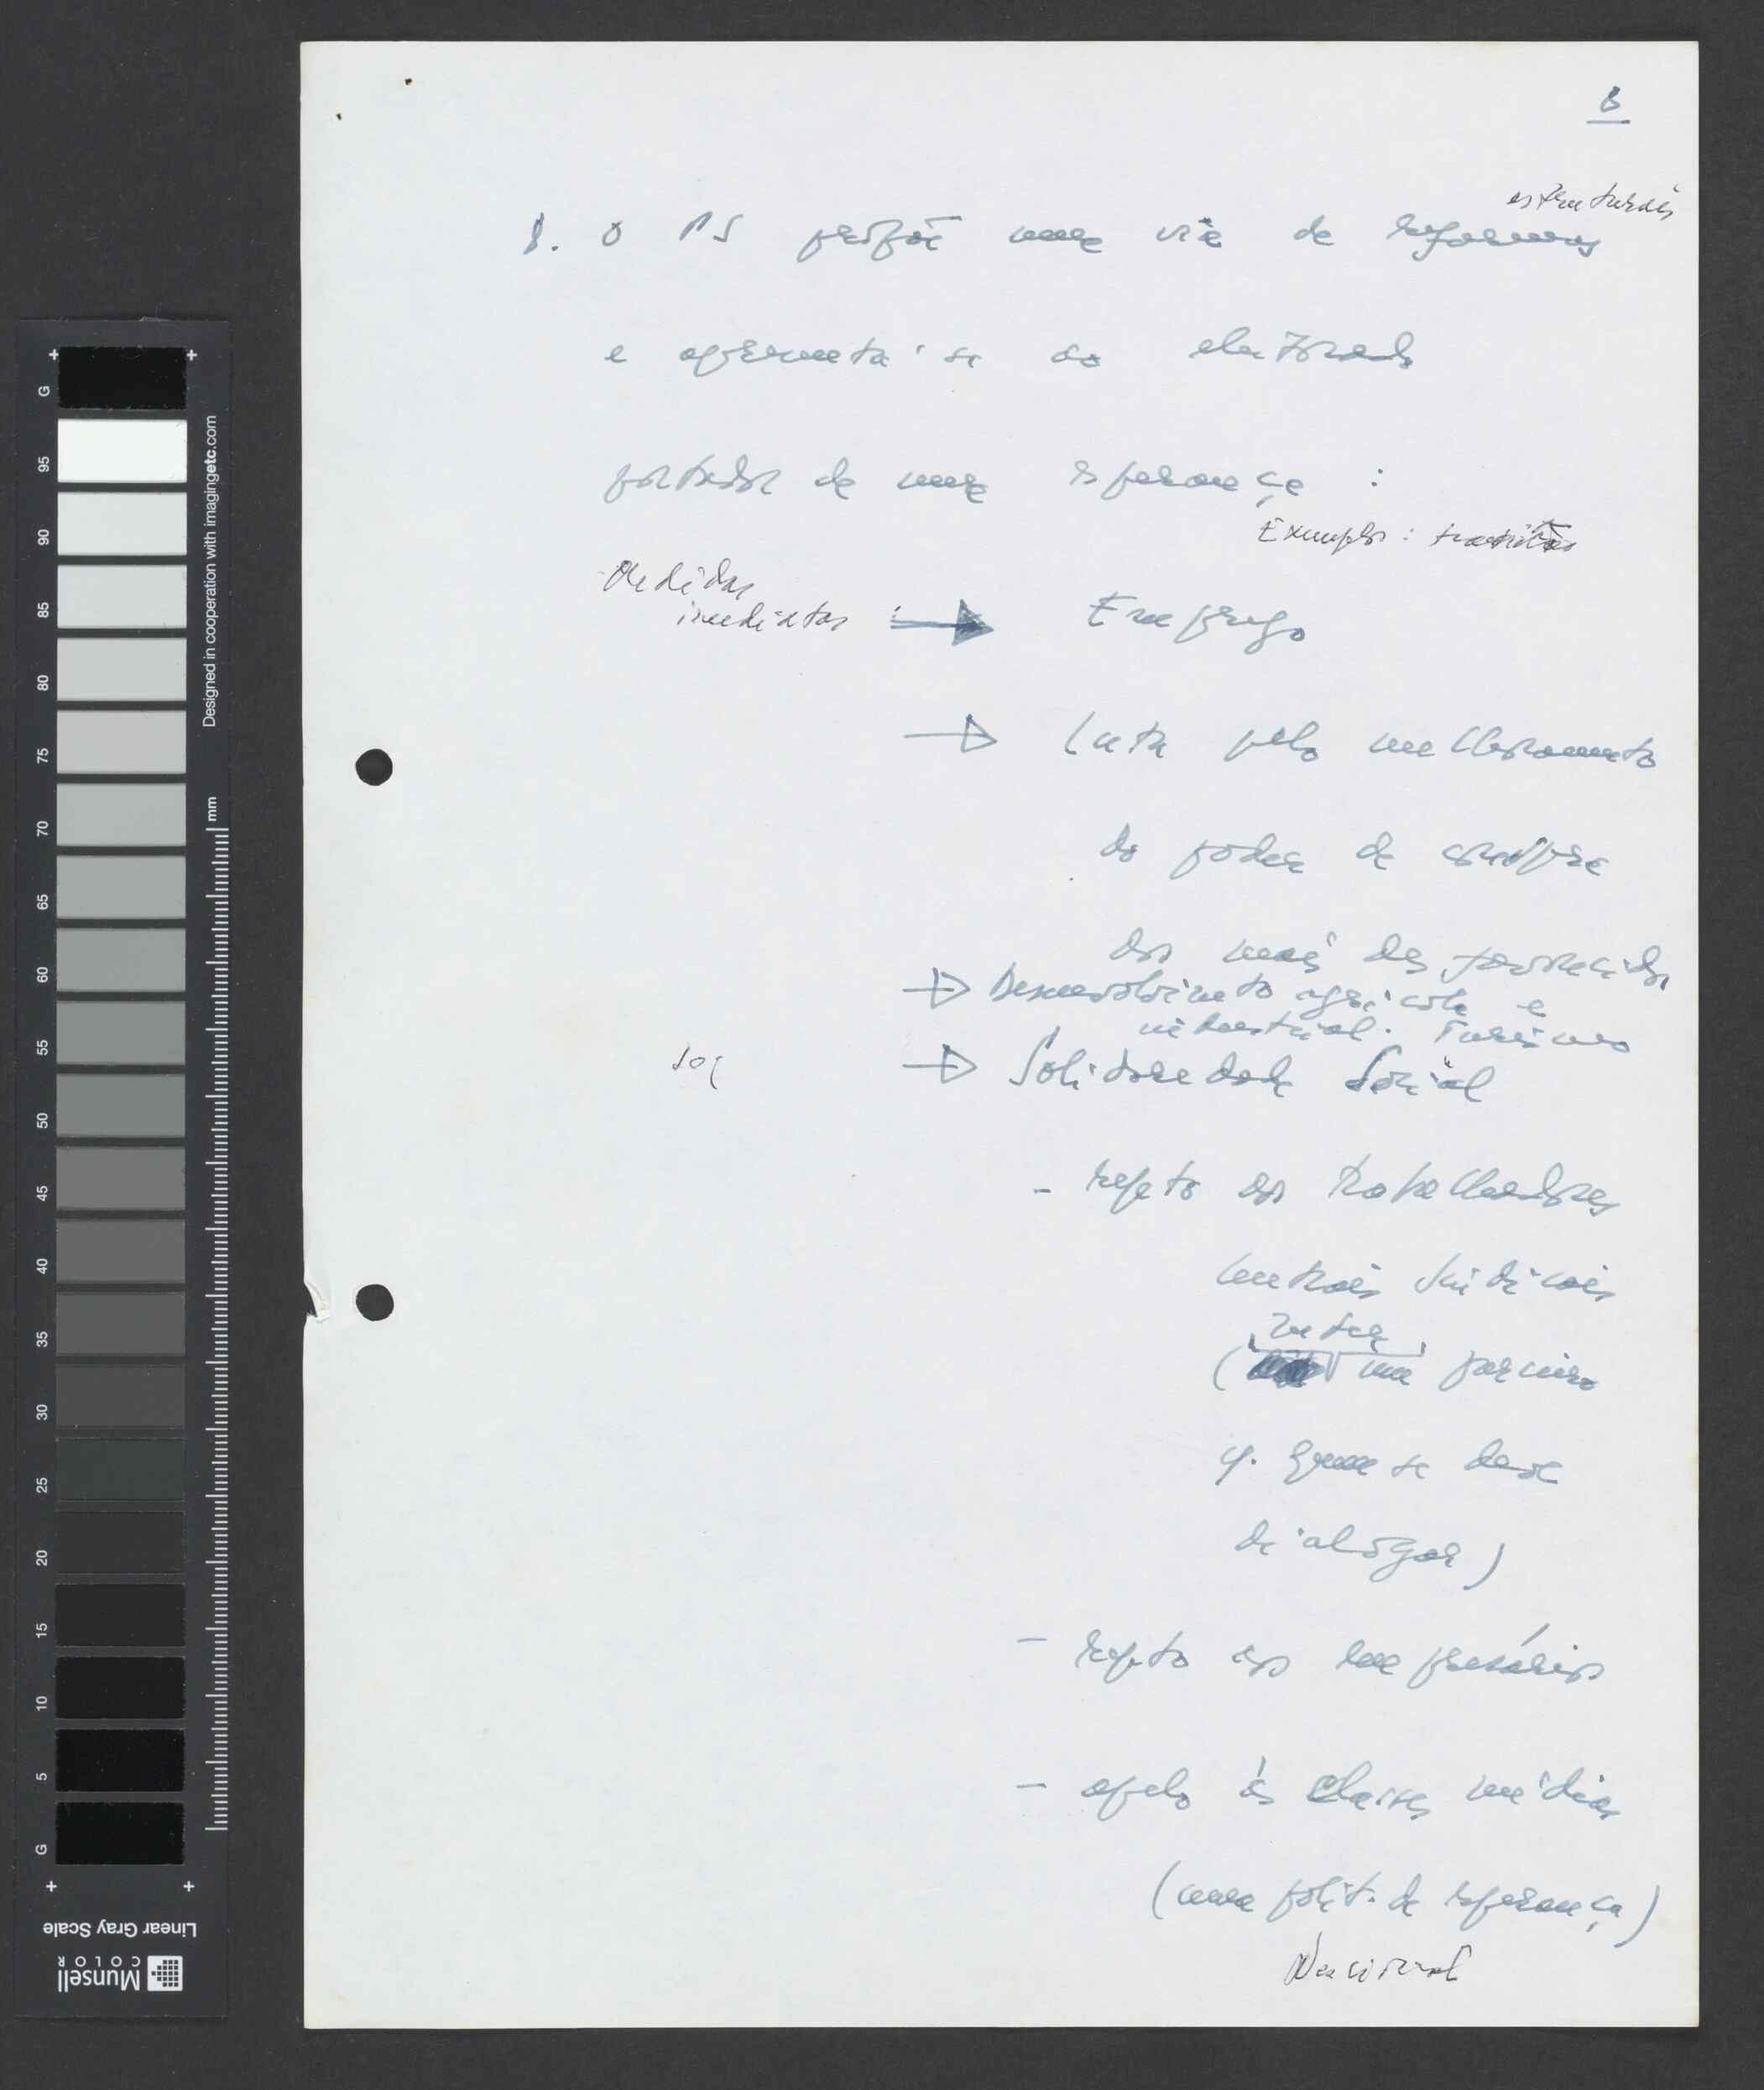 8
estruturais
8. O PS propõe uma via de reformas
e apresenta-se ao eleitorado
portador de uma esperança :
Exemplos :
Medidas
imediatas : → Emprego
→ Luta pelo melhoramento
do poder de compra
dos mais desfavorecidos
→ Desenvolvimento agrícola e
industrial. Turismo
soc
→ Solidariedade Social
- repto aos trabalhadores
centrais sindicais
( um parceiro
c/. quem se deve
dialogar)
- repto aos empresários
- apelo às classes médias
(uma polit. de esperança)
Nacional
G 95 90 85 80 75 70 65 60 55 50 45 40 35 30 25 20 15 10 5 G
Designed in cooperation with imagingetc.com
mm
Linear Gray Scale
Munsell
COLOR